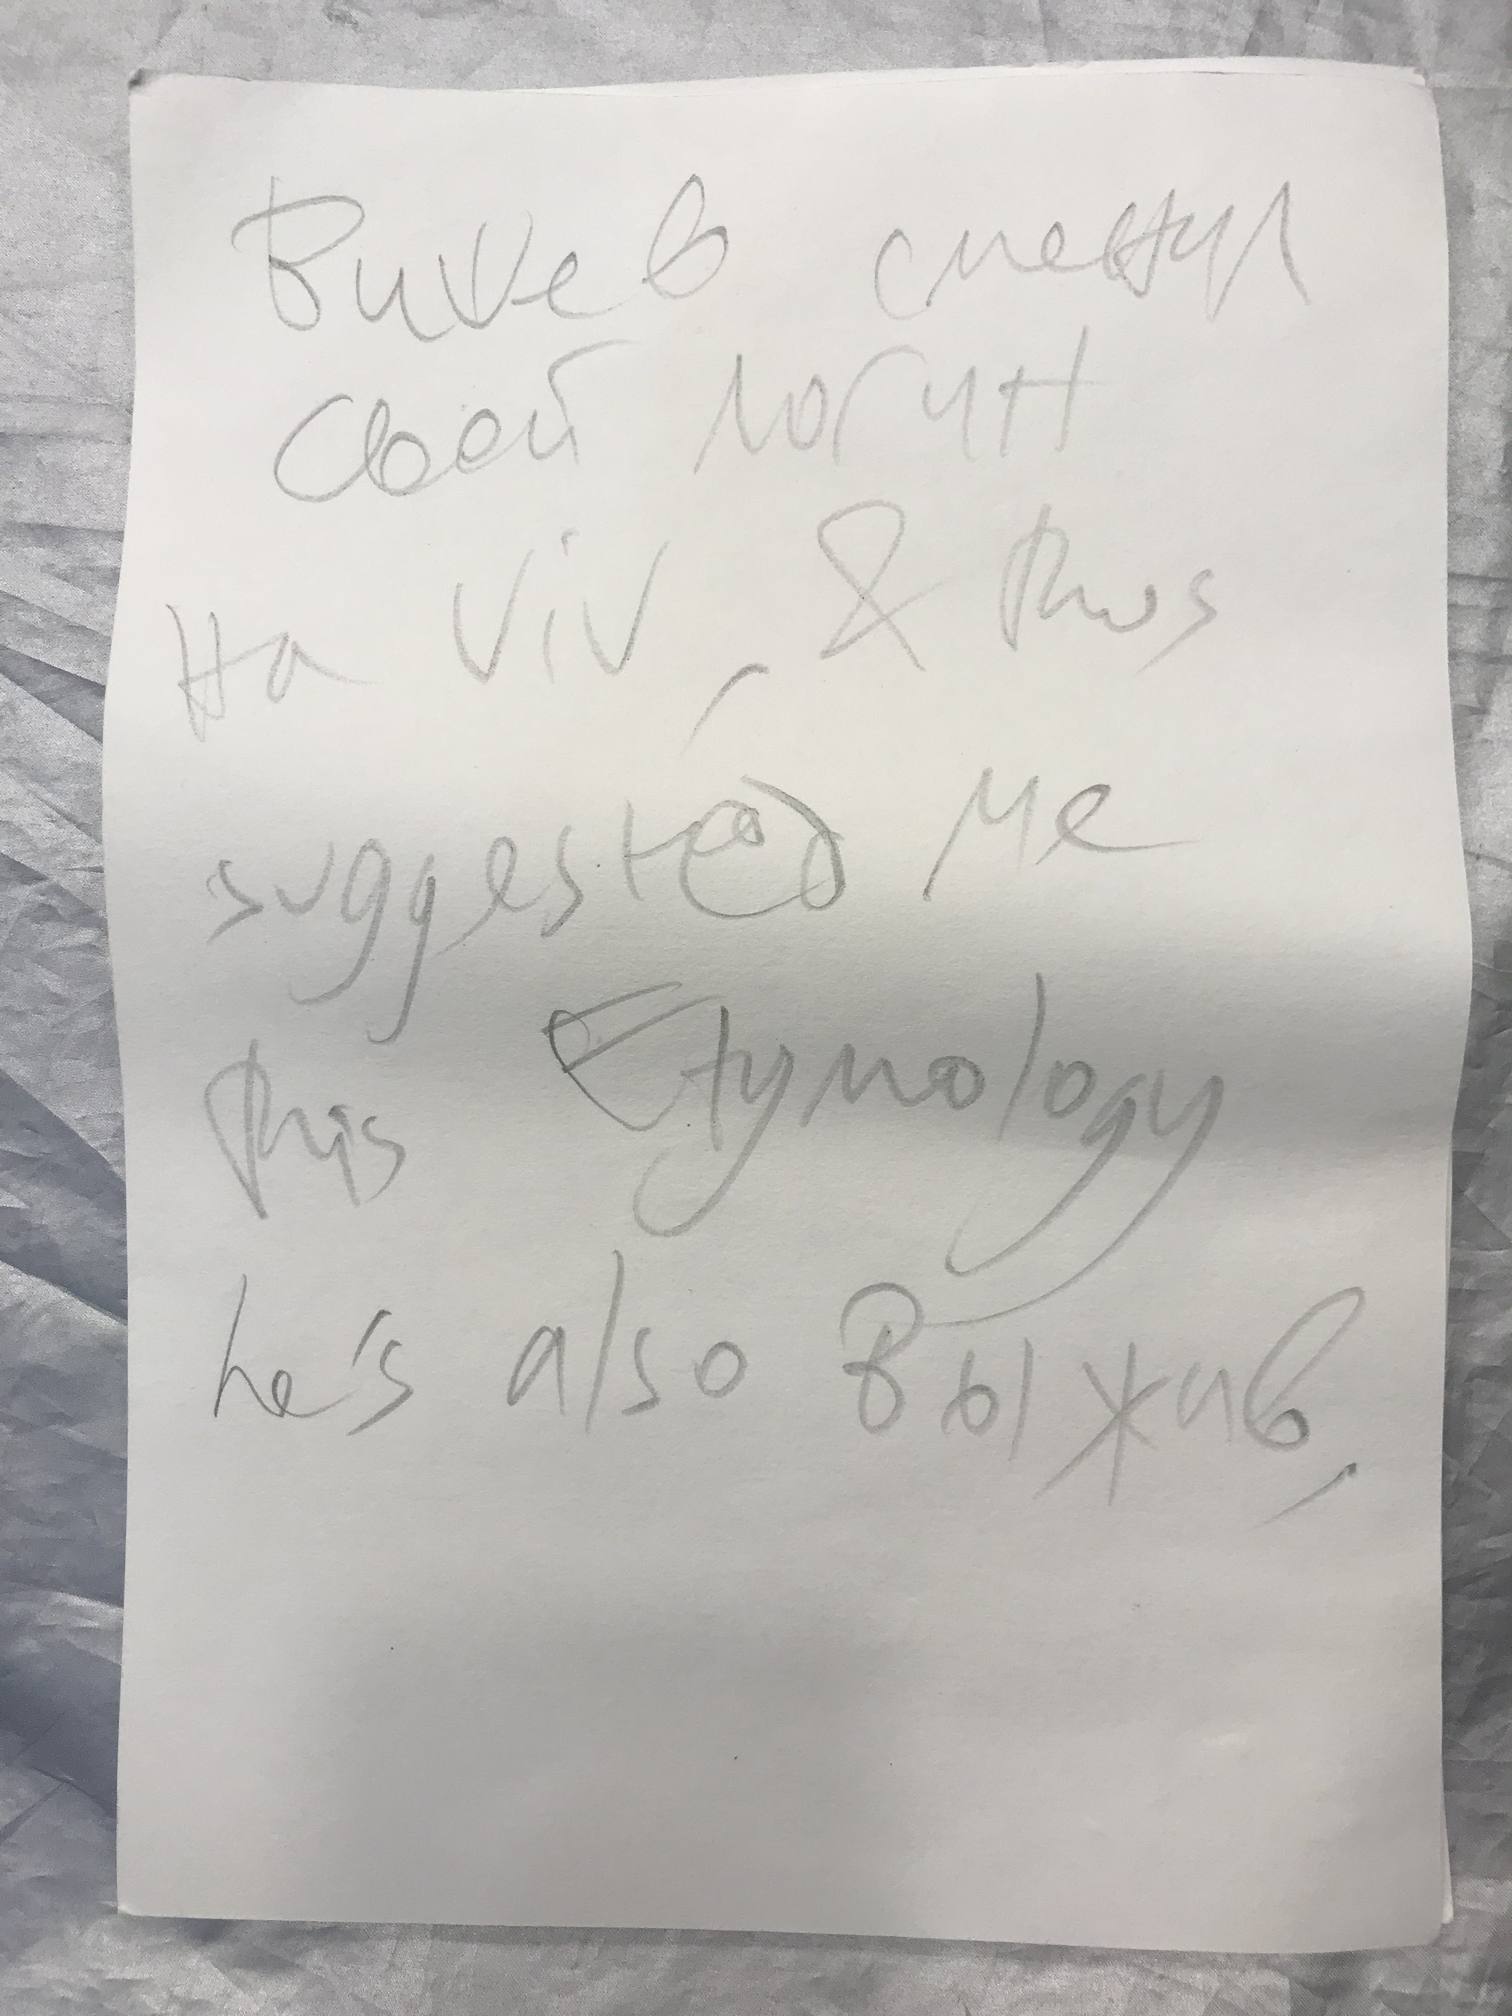 Вивев сменул
свой логин
на Viv, & thus
suggested me
this Etymology
he's also Выжив,